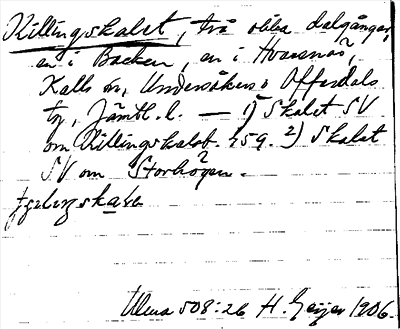 Killingskalet, två olika dalgångar,
en i Backen, en i Huså?,
Kalls sn, Undersåkers o Offerdals
tg, Jämtl. l. — 1) Skalet SV
om Killingskalob. 259. 2) Skalet
SV om Storhögen.

Ulma 508:26 H. Geijer 1906.